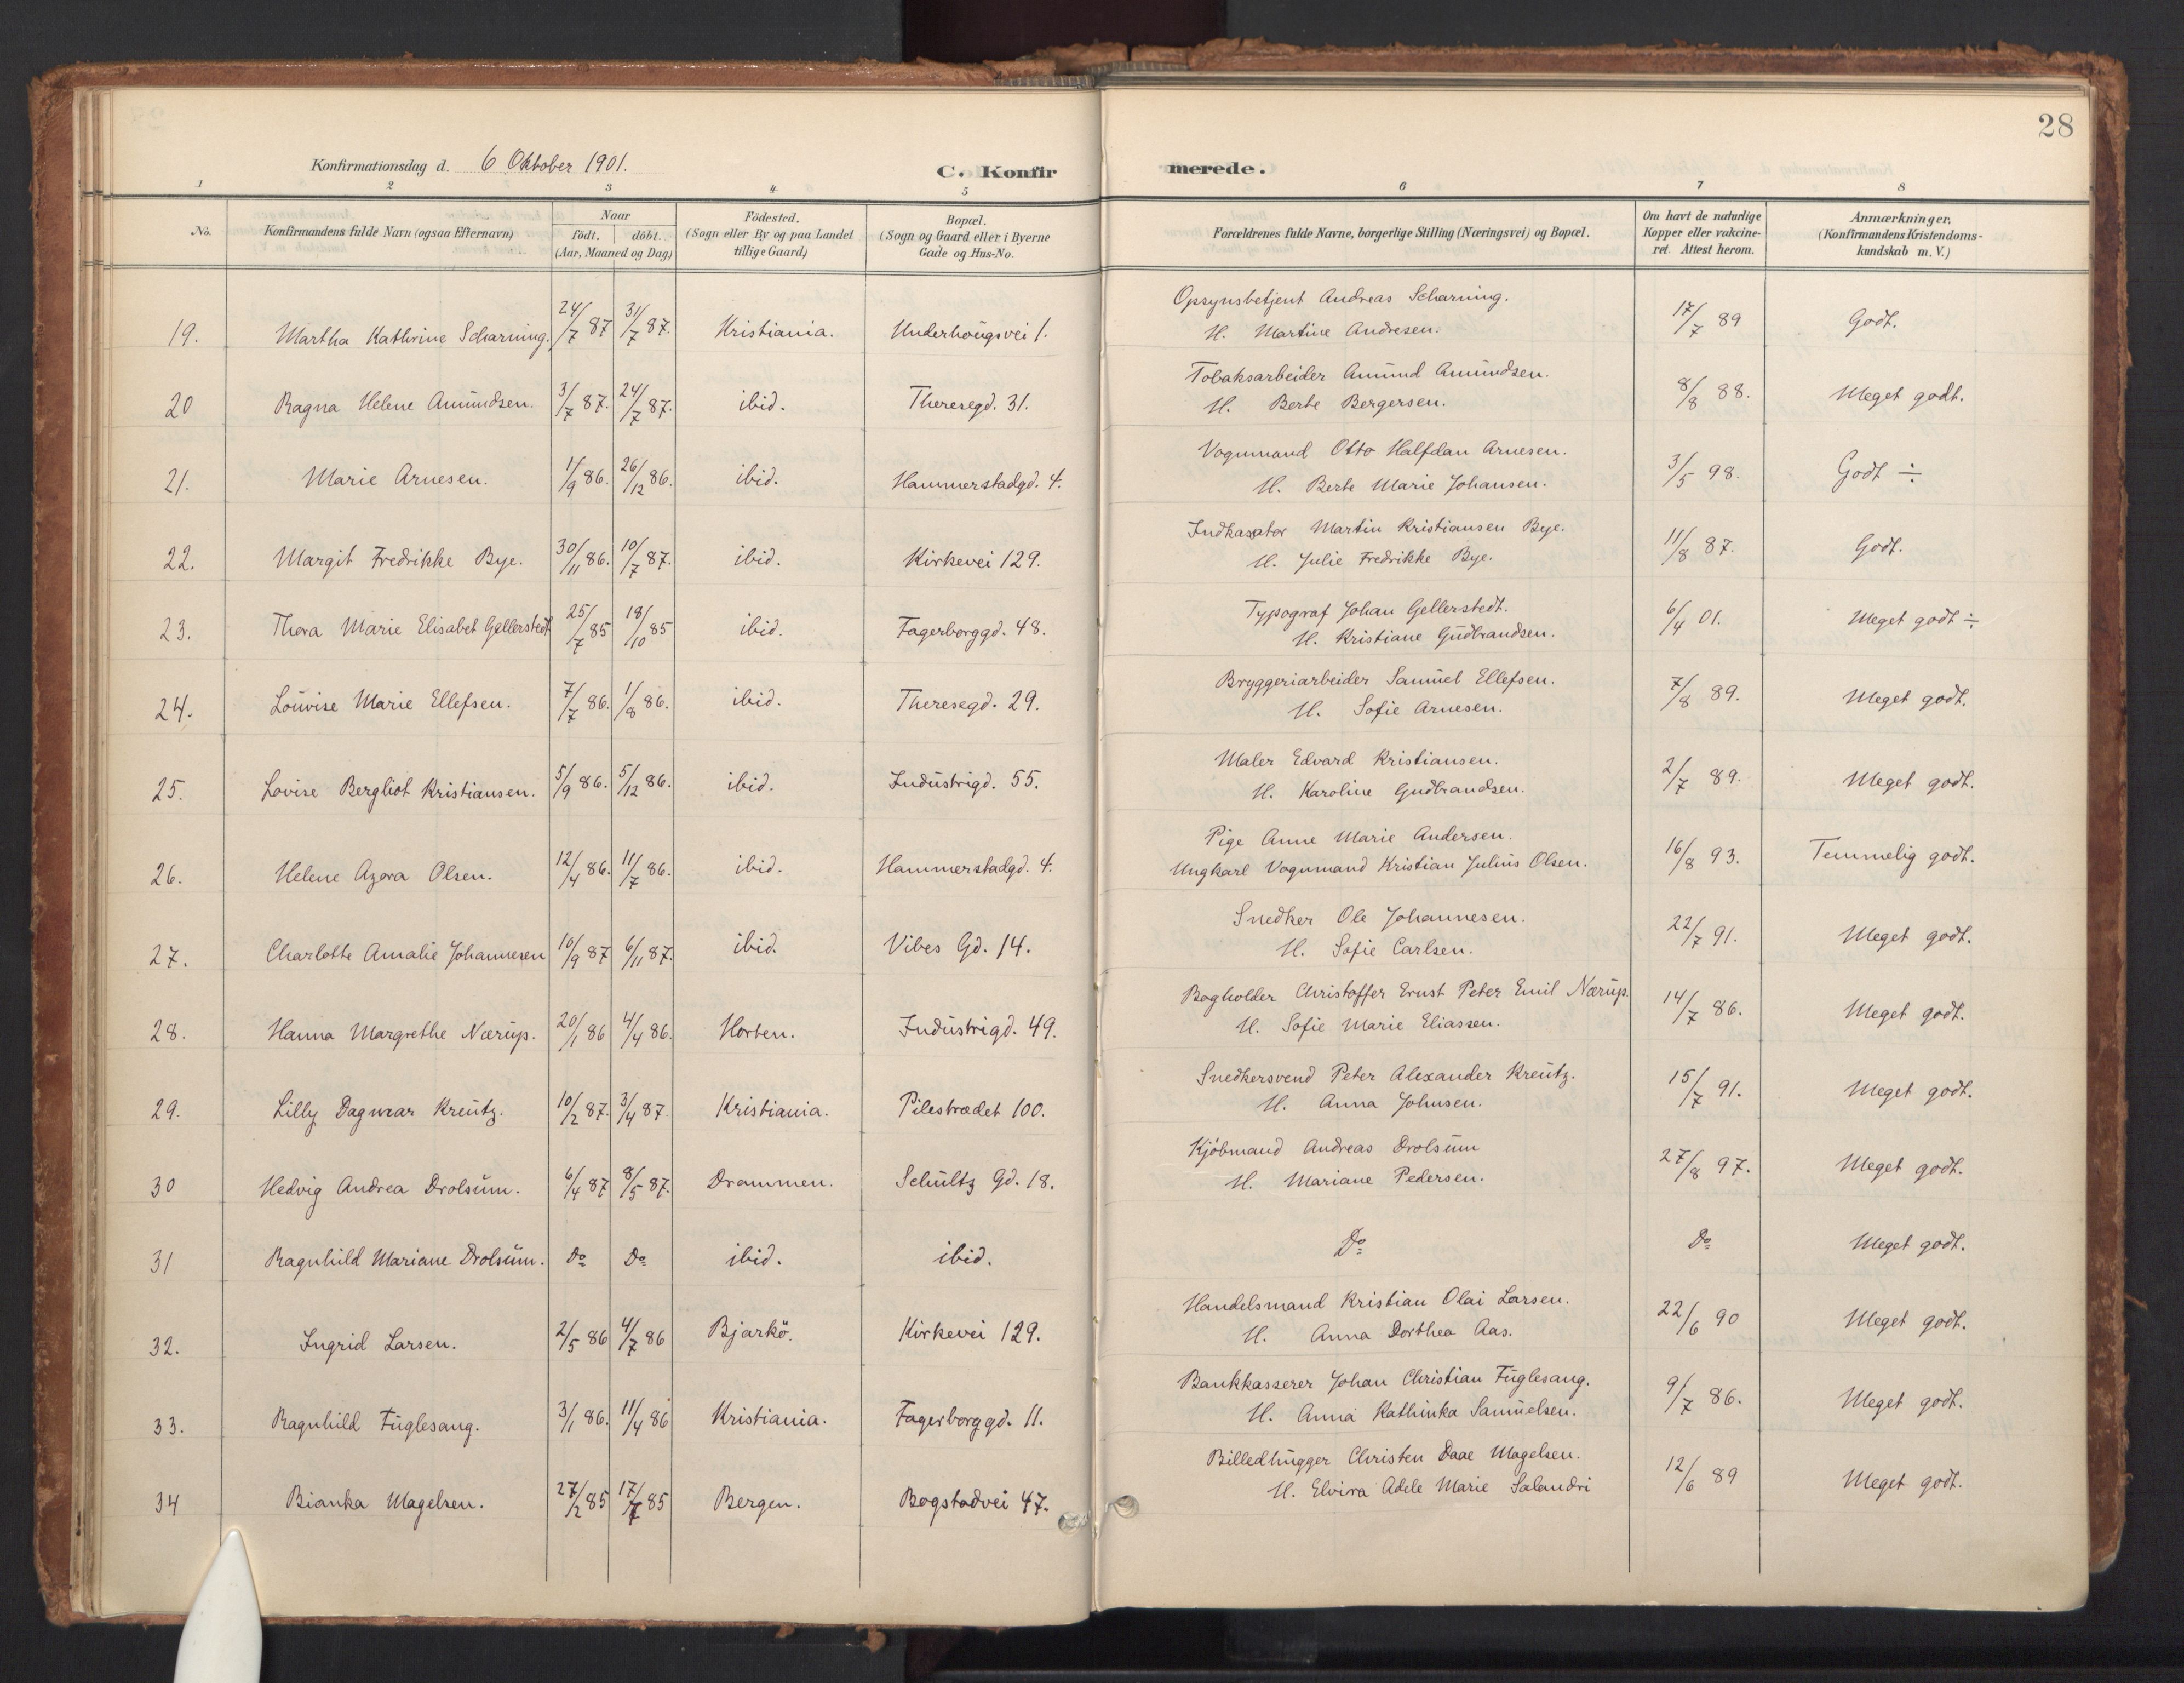 28
Konfirmationsdag d. 6 Oktober 1901. C. Konfirmerede.
1 2 3 4 5 6 7 8
No. Konfirmandens fulde Navn (ogsaa Efternavn) Naar Födt. döbt. (Aar, Maaned og Dag) Födested. (Sogn eller By og paa Landet tillige Gaard) Bopæl. (Sogn og Gaard eller i Byerne Gade og Hus-No. Forældrenes fulde Navne, borgerlige Stilling (Næringsvei) og Bopæl. Om havt de naturlige Kopper eller vakcineret. Attest herom. Anmærkninger, (Konfirmandens Kristendomskundskab m. V.)
19. Martha Kathrine Scharning. 24/7 87 31/7 87. Kristiania. Underhougsvei 1. Opsynsbetjent Andreas Scharning. 17/7 89 Godt.
H. Martine Andresen.
20 Ragna Helene Amundsen. 3/7 87. 24/7 87. ibid. Theresegd. 31. Tobaksarbeider Amund Amundsen. 8/8 88. Meget godt.
H. Berte Bergersen.
21. Marie Arnesen. 1/9 86. 26/12 86. ibid. Hammerstadgd. 4. Vognmand Otto Halfdan Arnesen. 3/5 98. Godt ÷
H. Berte Marie Johansen.
22. Margit Fredrikke Bye. 30/11 86. 10/7 87. ibid. Kirkevei 129. Indkasator Martin Kristiansen Bye. 11/8 87. Godt.
H. Julie Fredrikke Bye.
23. Thora Marie Elisabet Gellerstedt 25/7 85 18/10 85 ibid. Fagerborggd. 48. Typograf Johan Gellerstedt. 6/4 01. Meget godt ÷
H. Kristiane Gudbrandsen.
24. Louvise Marie Ellefsen. 7/7 86. 1/8 86. ibid. Theresegd. 29. Bryggeriarbeider Samuel Ellefsen. 7/8 89. Meget godt.
H. Sofie Arnesen.
25. Lovise Bergliot Kristiansen. 5/9 86. 5/12 86. ibid. Industrigd. 55. Maler Edvard Kristiansen. 2/7 89. Meget godt.
H. Karoline Gudbrandsen.
26. Helene Azora Olsen. 12/4 86. 11/7 86. ibid. Hammerstadgd. 4. Pige Anne Marie Andersen. 16/8 93. Temmelig godt.
Ungkarl Vognmand Kristian Julius Olsen.
27. Charlotte Amalie Johannesen 10/9 87 6/11 87. ibid. Vibes Gd. 14. Snedker Ole Johannesen. 22/7 91. Meget godt.
H. Sofie Carlsen.
28. Hanna Margrethe Nærup. 20/1 86 4/4 86. Horten. Industrigd. 49. Bogholder Christoffer Ernst Peter Emil Nærup. 14/7 86. Meget godt.
H. Sofie Marie Eliassen.
29. Lilly Dagmar Kreutz. 10/2 87. 3/4 87. Kristiania. Pilestrædet 100. Snedkersvend Peter Alexander Kreutz. 15/7 91. Meget godt.
H. Anna Johnsen.
30 Hedvig Andrea Drolsum. 6/4 87 8/5 87. Drammen. Schultz Gd. 18. Kjöbmand Andreas Drolsum 27/8 97. Meget godt.
H. Mariane Pedersen.
31 Ragnhild Mariane Drolsum. Do Do ibid. ibid. Do Do Meget godt.
32. Ingrid Larsen. 2/5 86 4/7 86 Bjarkö. Kirkevei 129. Handelsmand Kristian Olai Larsen. 22/6 90 Meget godt.
H. Anna Dorthea Aas.
33. Ragnhild Fuglesang. 3/1 86. 11/4 86 Kristiania. Fagerborggd. 11. Bankkasserer Johan Christian Fuglesang. 9/7 86. Meget godt.
H. Anna Kathinka Samuelsen.
34 Bianka Magelsen. 27/2 85 17/7 85 Bergen. Bogstadvei 47. Billedhugger Christen Daae Magelsen. 12/6 89 Meget godt.
H. Elvira Adele Marie Salandri